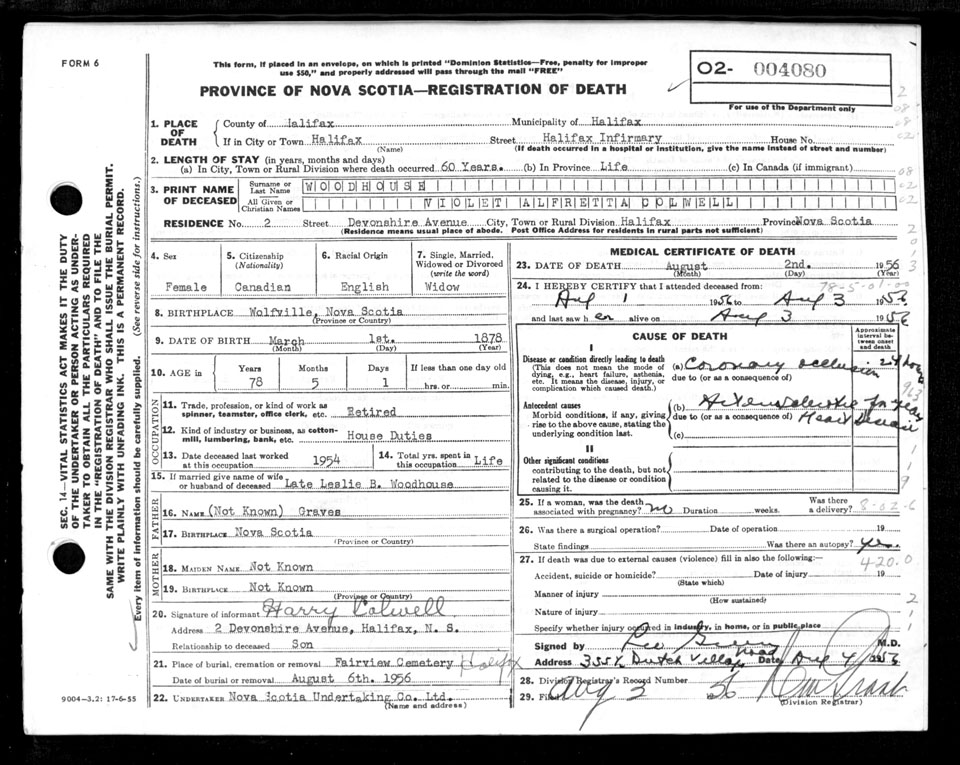 FORM 6
This form, if placed in an envelope, on which is printed "Dominion Statistics—Free, penalty for improper
use $50," and properly addressed will pass through the mail "FREE"
O2- 004080
PROVINCE OF NOVA SCOTIA—REGISTRATION OF DEATH
For use of the Department only
1. PLACE OF DEATH
County of Halifax Municipality of Halifax
If in City or Town Halifax Street Halifax Infirmary House No.
(Name) (If death occurred in a hospital or institution, give the name instead of street and number)
2. LENGTH OF STAY (in years, months and days)
(a) In City, Town or Rural Division where death occurred 60 Years. (b) In Province Life (c) In Canada (if immigrant)
3. PRINT NAME OF DECEASED
Surname or Last Name WOODHOUSE
All Given or Christian Names VIOLET ALFRETTA COLWELL
RESIDENCE No. 2 Street Devonshire Avenue City, Town or Rural Division Halifax Province Nova Scotia
(Residence means usual place of abode. Post Office Address for residents in rural parts not sufficient)
4. Sex
Female
5. Citizenship (Nationality)
Canadian
6. Racial Origin
English
7. Single, Married, Widowed or Divorced (write the word)
Widow
8. BIRTHPLACE Wolfville, Nova Scotia
(Province or Country)
9. DATE OF BIRTH March 1st. 1878
(Month) (Day) (Year)
10. AGE in Years Months Days If less than one day old
78 5 1 hrs. or min.
OCCUPATION
11. Trade, profession, or kind of work as spinner, teamster, office clerk, etc. Retired
12. Kind of industry or business, as cotton-mill, lumbering, bank, etc. House Duties
13. Date deceased last worked at this occupation 1954
14. Total yrs. spent in this occupation Life
15. If married give name of wife or husband of deceased Late Leslie B. Woodhouse
FATHER
16. NAME (Not Known) Graves
17. BIRTHPLACE Nova Scotia
(Province or Country)
MOTHER
18. MAIDEN NAME Not Known
19. BIRTHPLACE Not Known
(Province or Country)
20. Signature of informant Harry Colwell
Address 2 Devonshire Avenue, Halifax, N. S.
Relationship to deceased Son
21. Place of burial, cremation or removal Fairview Cemetery Halifax
Date of burial or removal August 6th. 1956
22. UNDERTAKER Nova Scotia Undertaking Co. Ltd.
(Name and address)
MEDICAL CERTIFICATE OF DEATH
23. DATE OF DEATH August 2nd. 1956
(Month) (Day) (Year)
78-5-01-00
24. I HEREBY CERTIFY that I attended deceased from:
Aug 1 1956 to Aug 3 1956
and last saw h er alive on Aug 3 1956
CAUSE OF DEATH
Approximate interval between onset and death
I
Disease or condition directly leading to death
(This does not mean the mode of dying, e.g., heart failure, asthenia, etc. It means the disease, injury, or complication which caused death.)
(a) Coronary occlusion 24 hours
due to (or as a consequence of)
Antecedent causes
Morbid conditions, if any, giving rise to the above cause, stating the underlying condition last.
(b)
due to (or as a consequence of) Heart Disease
(c)
II
Other significant conditions
contributing to the death, but not related to the disease or condition causing it.
25. If a woman, was the death associated with pregnancy? no Duration weeks. Was there a delivery? 8-02-6
26. Was there a surgical operation? Date of operation 19
State findings Was there an autopsy? yes.
27. If death was due to external causes (violence) fill in also the following:
420.0
Accident, suicide or homicide? Date of injury 19
(State which)
Manner of injury
(How sustained)
Nature of injury
Specify whether injury occurred in industry, in home, or in public place
Signed by M.D.
Address Dutch Village Road Date Aug 4 1956
28. Division Registrar's Record Number
29. Filed Aug 3 56
(Division Registrar)
SEC. 14—VITAL STATISTICS ACT MAKES IT THE DUTY
OF THE UNDERTAKER OR PERSON ACTING AS UNDER-
TAKER TO OBTAIN ALL THE PARTICULARS REQUIRED
IN THE "REGISTRATION OF DEATH" AND TO FILE THE
SAME WITH THE DIVISION REGISTRAR WHO SHALL ISSUE THE BURIAL PERMIT.
WRITE PLAINLY WITH UNFADING INK. THIS IS A PERMANENT RECORD.
Every item of information should be carefully supplied. (See reverse side for instructions.)
9004-3.2: 17-6-55